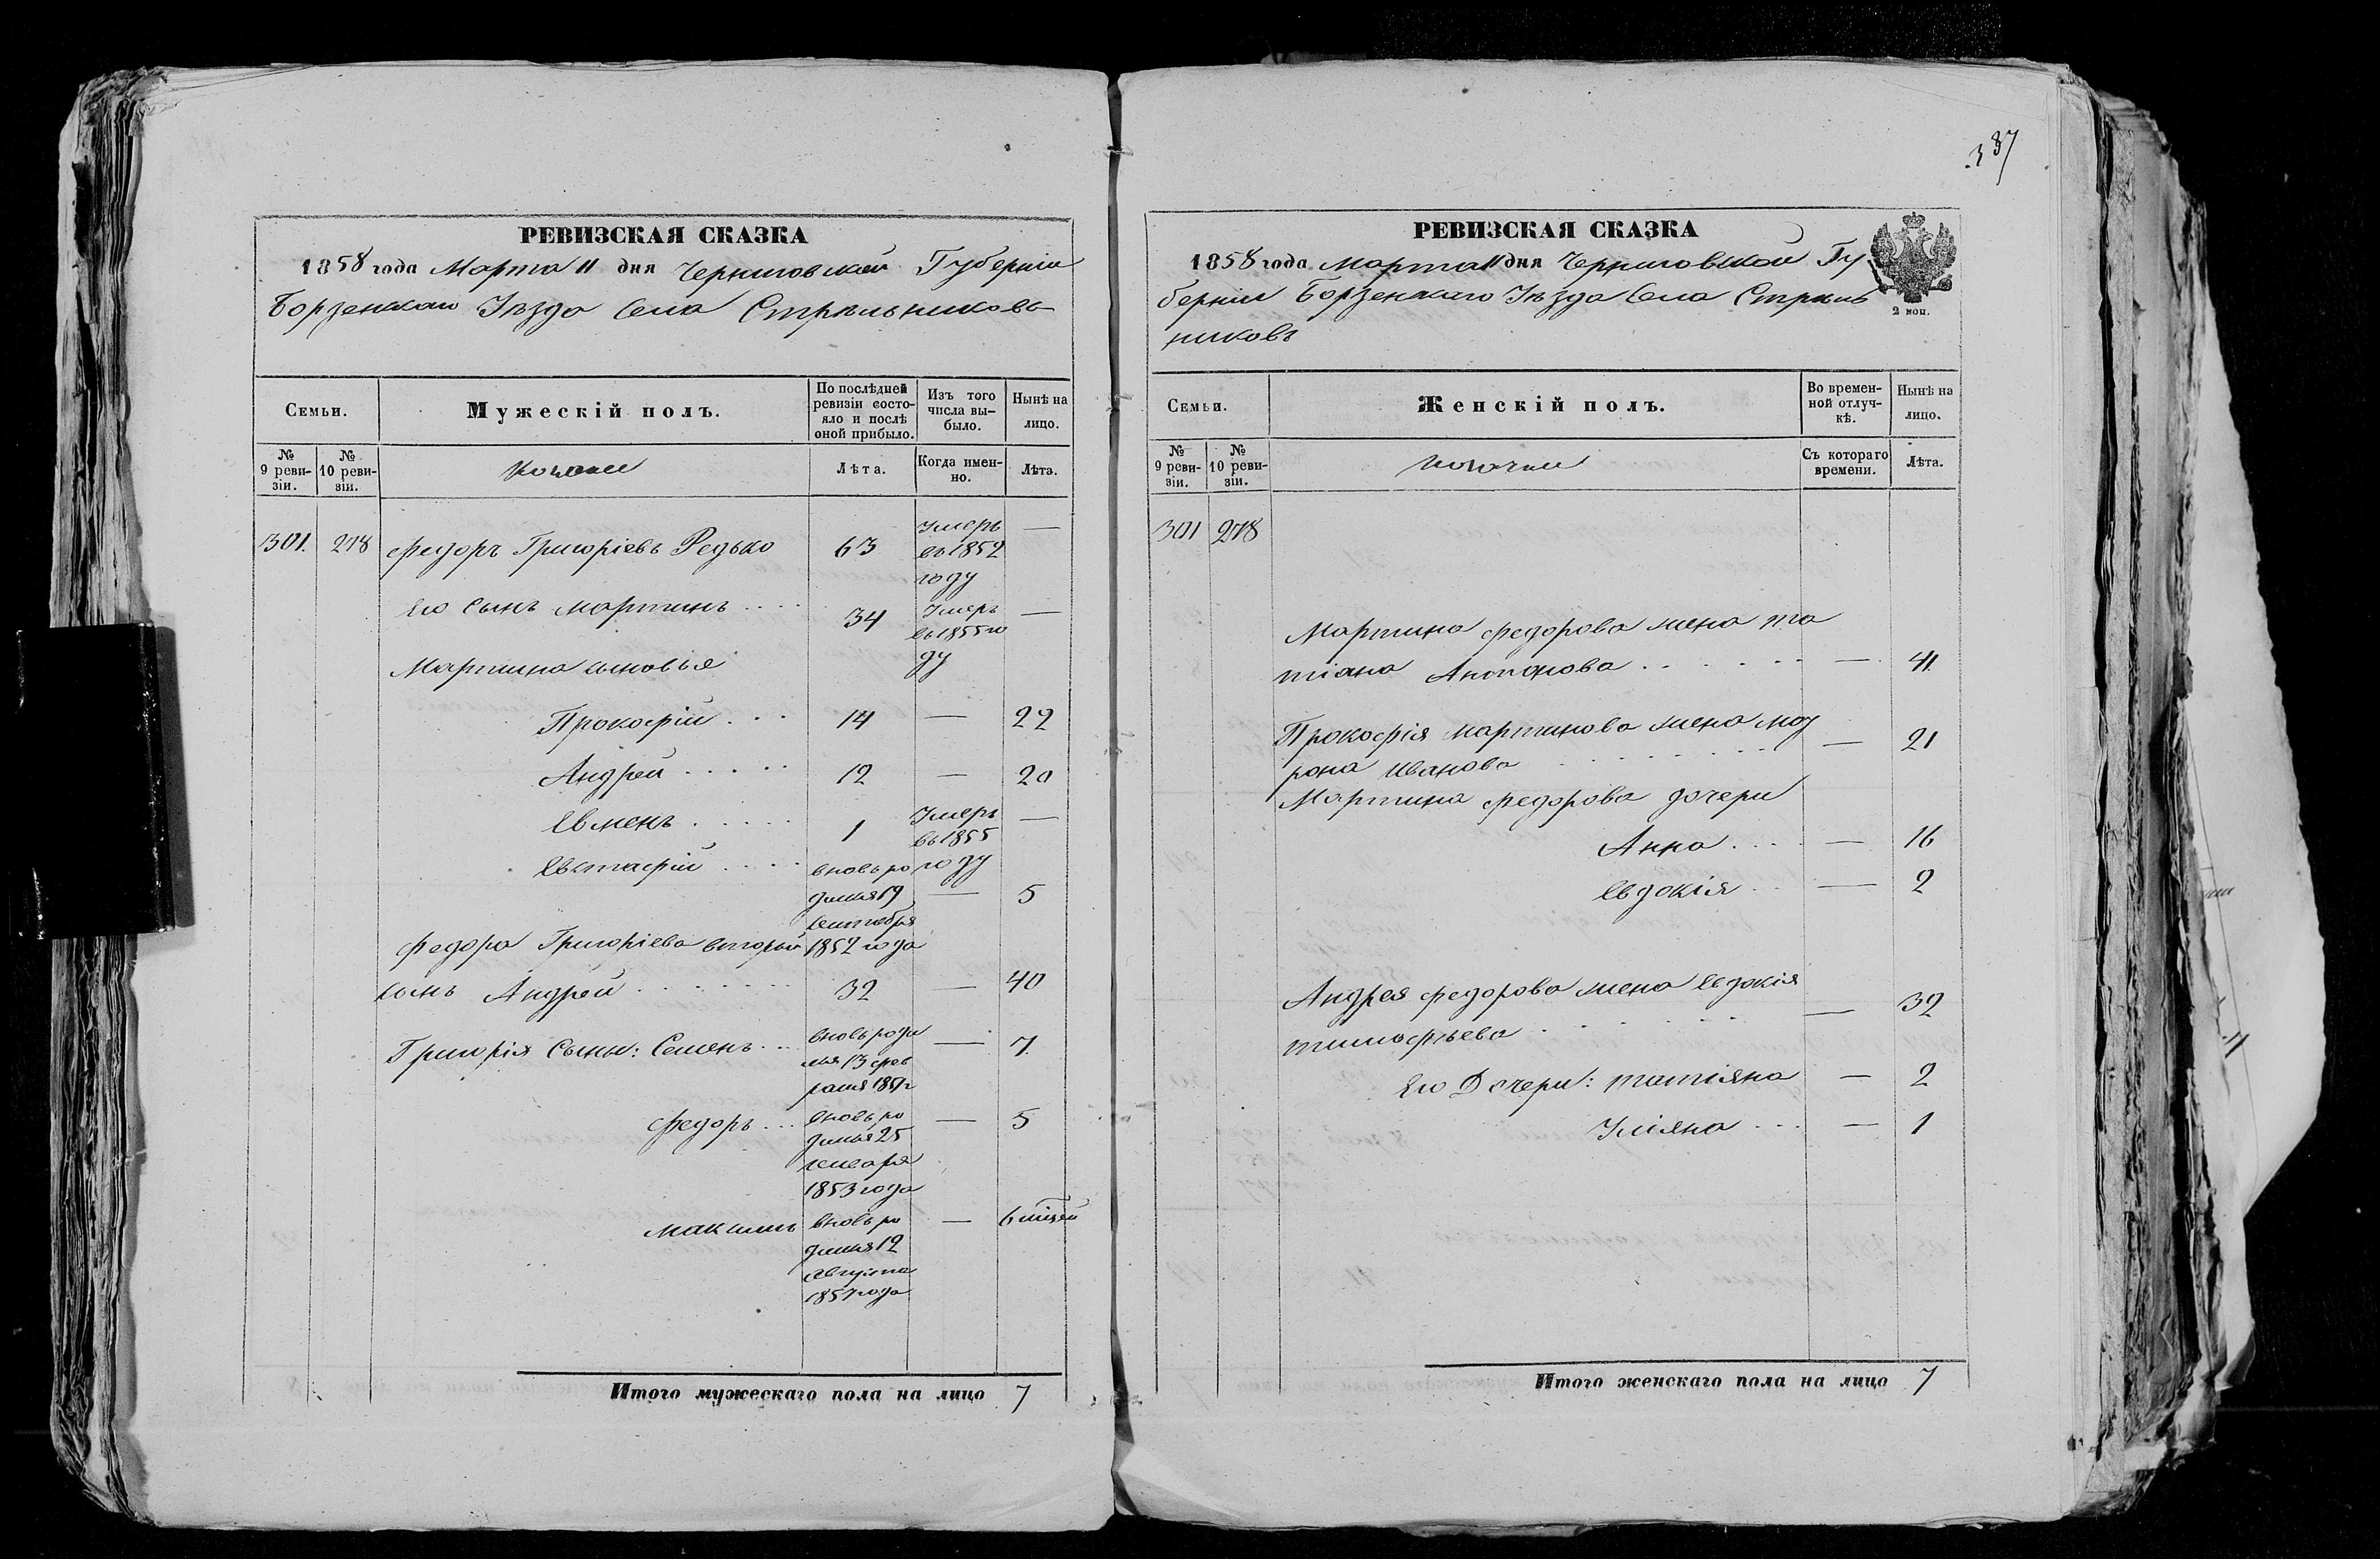 337
РЕВИЗСКАЯ СКАЗКА
1858 года Марта 11 дня Черниговской Губерніи
Борзенскаго Уѣзда Села Стрѣльниковъ
Семьи.
Мужескій полъ.
По послѣдней ревизіи состояло и послѣ оной прибыло.
Изъ того числа выбыло.
Нынѣ на лицо.
№ 9 ревизіи.
№ 10 ревизіи.
Козаки
Лѣта.
Когда именно.
Лѣта.
301. 278 Федоръ Григоріевъ Редько 63 Умеръ въ 1852 году —
Его Сынъ Мартинъ .... 34 Умеръ въ 1855 году —
Мартина сыновья
Прокофій ... 14 — 22
Андрей ..... 12 — 20
Евменъ ..... 1 Умеръ въ 1855 году —
Евстафій .... вновь родился 19 Сентября 1852 года — 5
Федора Григоріева вторый
сынъ Андрей ....... 32 — 40
Григорія Сыны: Семенъ ... вновь родился 13 февраля — 7
Федоръ ... вновь родился 25 января 1853 года — 5
Максимъ вновь родился 12 Августа 1857 года — 6
Итого мужескаго пола на лицо 7
РЕВИЗСКАЯ СКАЗКА
1858 года Марта 11 дня Черниговской Гу
берніи Борзенскаго Уѣзда Села Стрѣль
никовъ
2 коп.
Семьи.
Женскій полъ.
Во временной отлучкѣ.
Нынѣ на лицо.
№ 9 ревизіи.
№ 10 ревизіи.
Козачки
Съ котораго времени.
Лѣта.
301 278
Мартина Федорова жена та
тіана Антонова ...... — 41
Прокофія Мартинова жена Мот
рона Иванова ....... — 21
Мартина Федорова дочери
Анна .... — 16
Евдокія .. — 2
Андрея Федорова жена Евдокія
тимофѣева ...... — 32
Его Дочери: татіяна — 2
Уліяна ... — 1
Итого женскаго пола на лицо 7